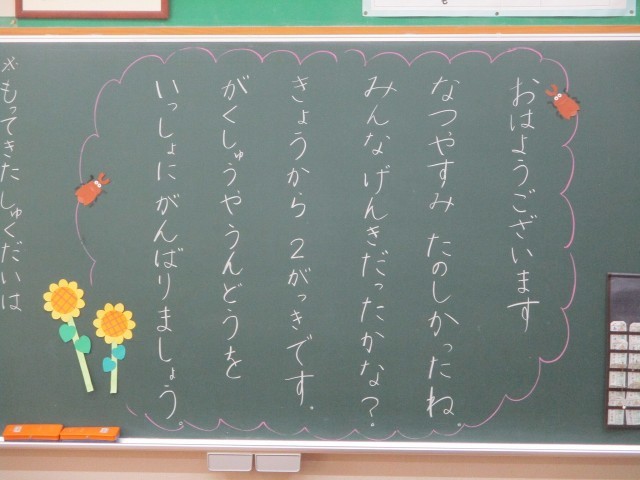 おはようございます
なつやすみ たのしかったね。
みんなげんきだったかな?
きょうから 2がっきです。
がくしゅうやうんどうを
いっしょにがんばりましょう。
※もってきた しゅくだいは